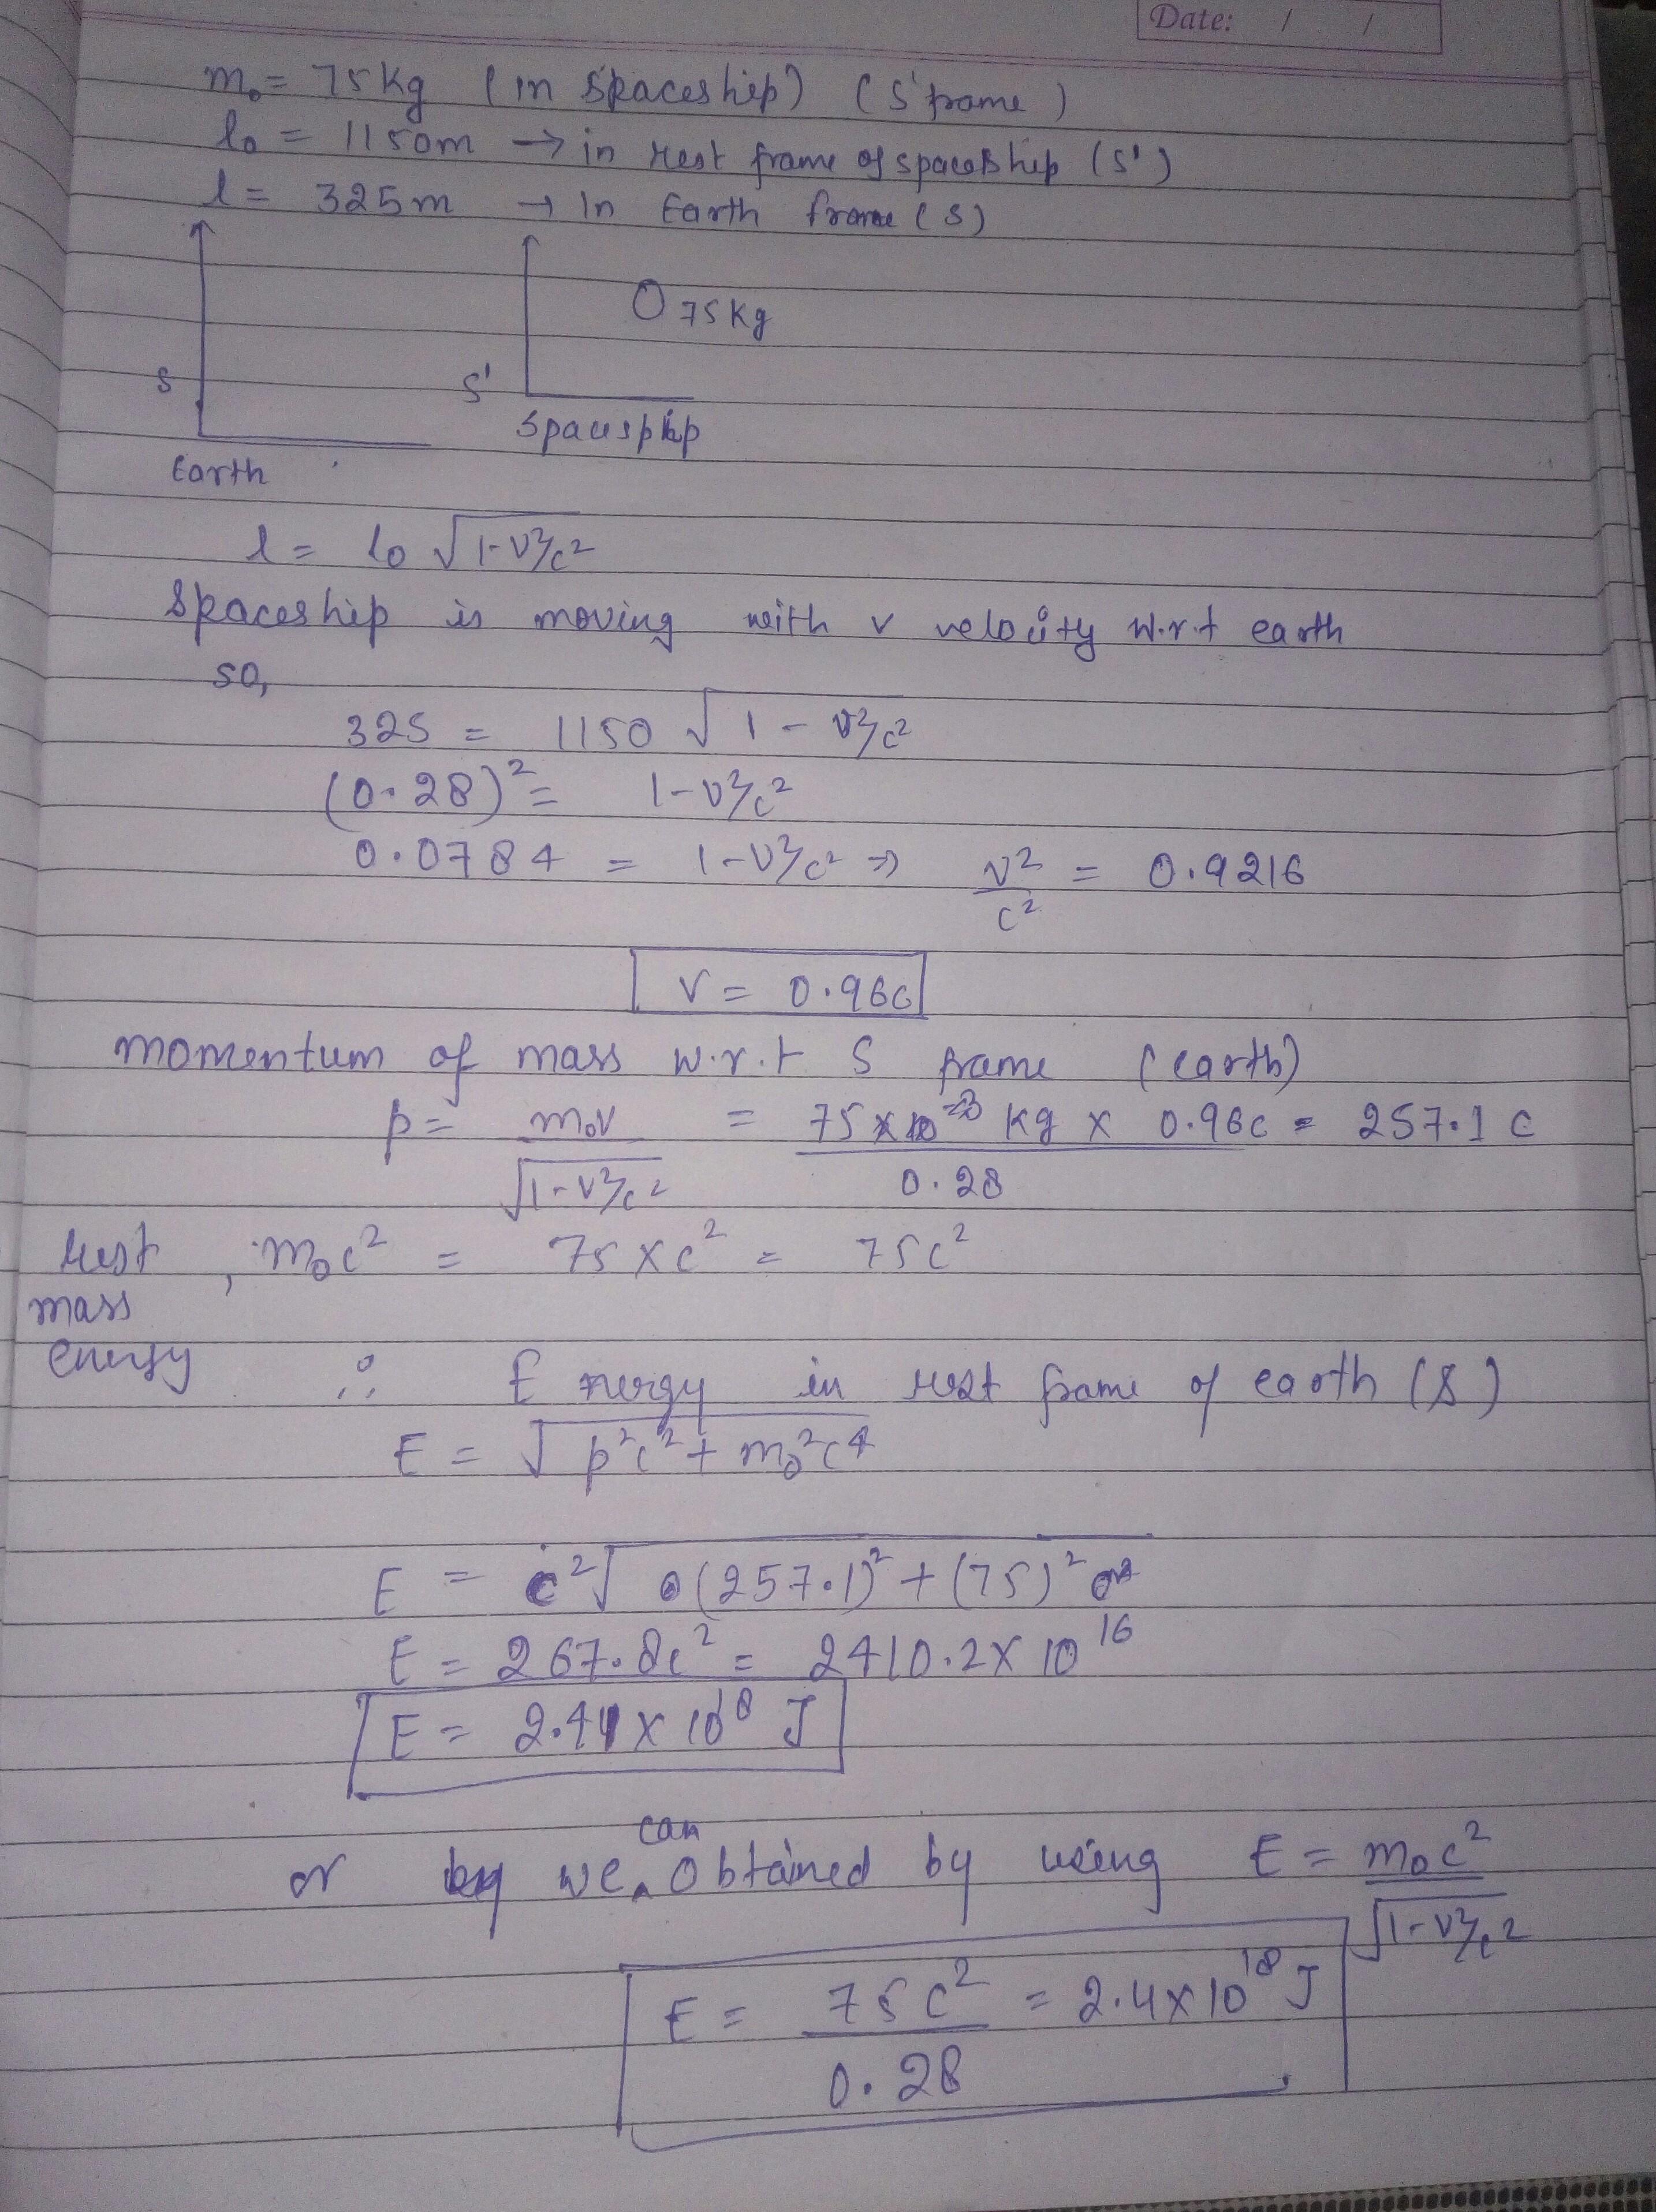 Date: / /
m₀ = 75 kg (in spaceship) (S' frame)
l₀ = 1150m → in rest frame of spaceship (S')
l = 325m → In Earth frame (S)
O 75 kg
S S'
spacusphip
Earth
l = l₀ √1-v²/c²
Spaceship is moving with v velocity w.r.t earth
so,
325 = 1150 √1 - v²/c²
(0.28)² = 1-v²/c²
0.0784 = 1-v²/c² ⇒ v²/c² = 0.9216
v = 0.96c
momentum of mass w.r.t S frame (earth)
p = m₀v/√1-v²/c² = 75 kg x 0.96c/0.28 = 257.1 c
Rest mass energy, m₀c² = 75 x c² = 75c²
∴ Energy in rest frame of earth (S)
E = √p²c² + m₀²c⁴
E = c²√(257.1)² + (75)²
E = 267.8c² = 2410.2 x 10¹⁶
E = 2.41 x 10¹⁸ J
or we can obtained by using E = m₀c²/√1-v²/c²
E = 75c²/0.28 = 2.4 x 10¹⁸ J